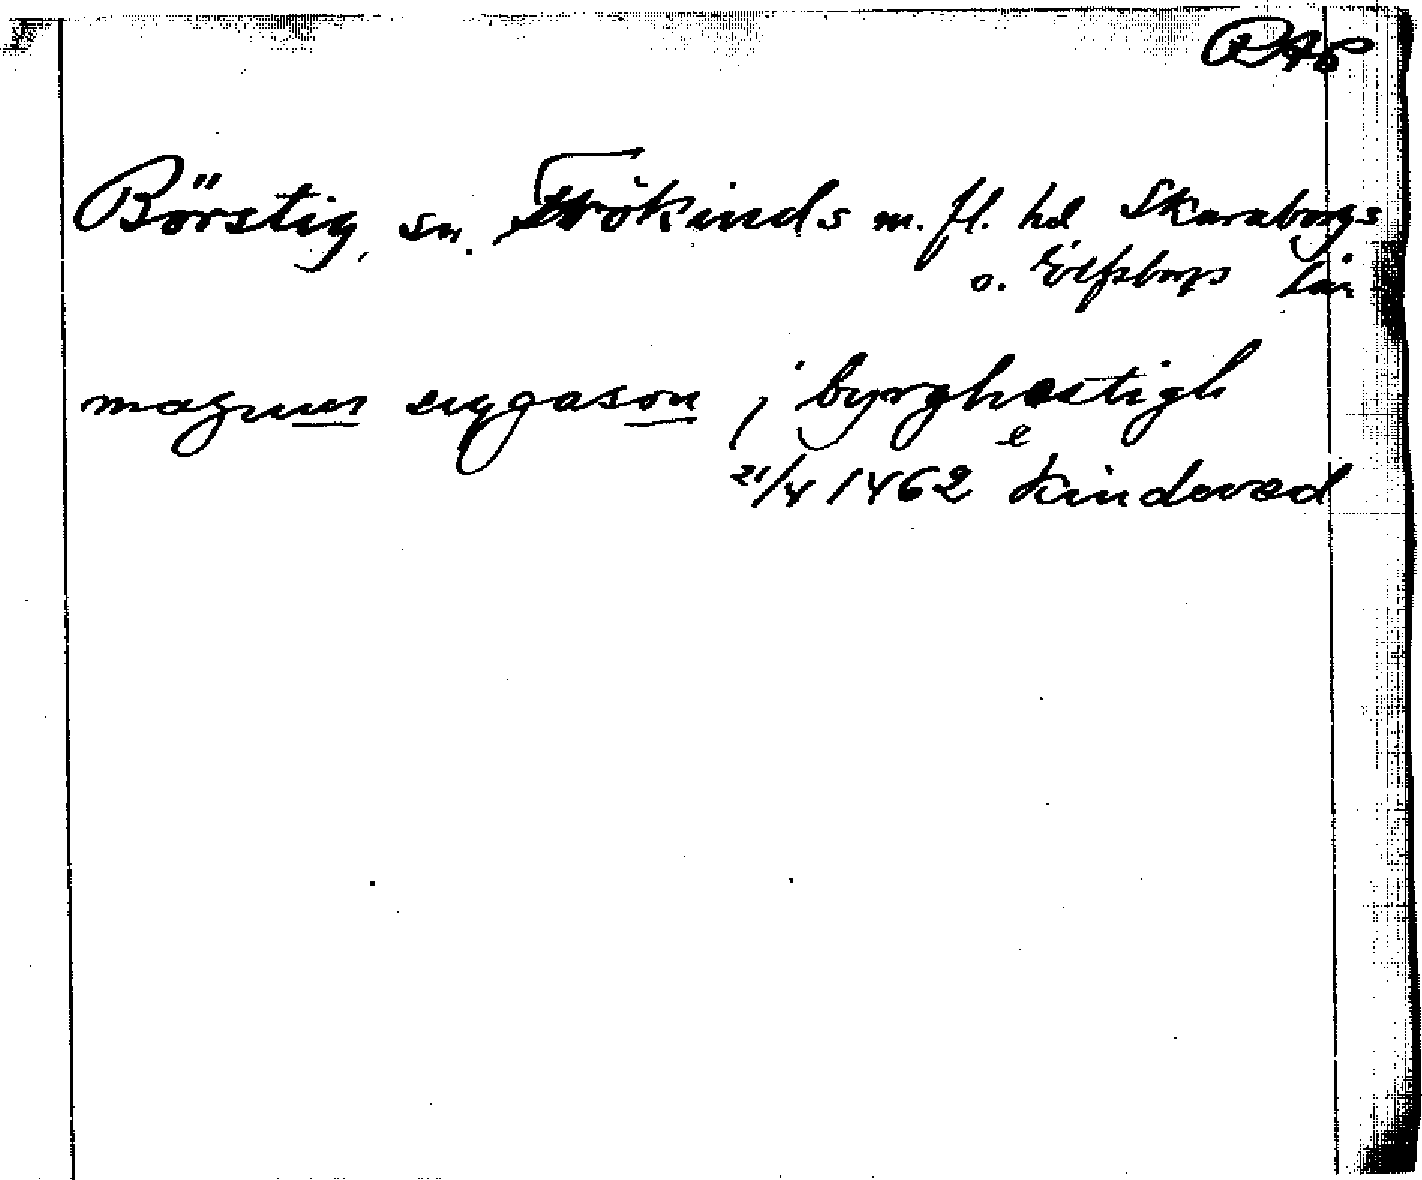 RAp
Börstig, sn. Frökinds m. fl. hd Skaraborgs
o. Älfsborgs län
magnus eggason j byrghestigh
e
21/4 1462 Kindeved